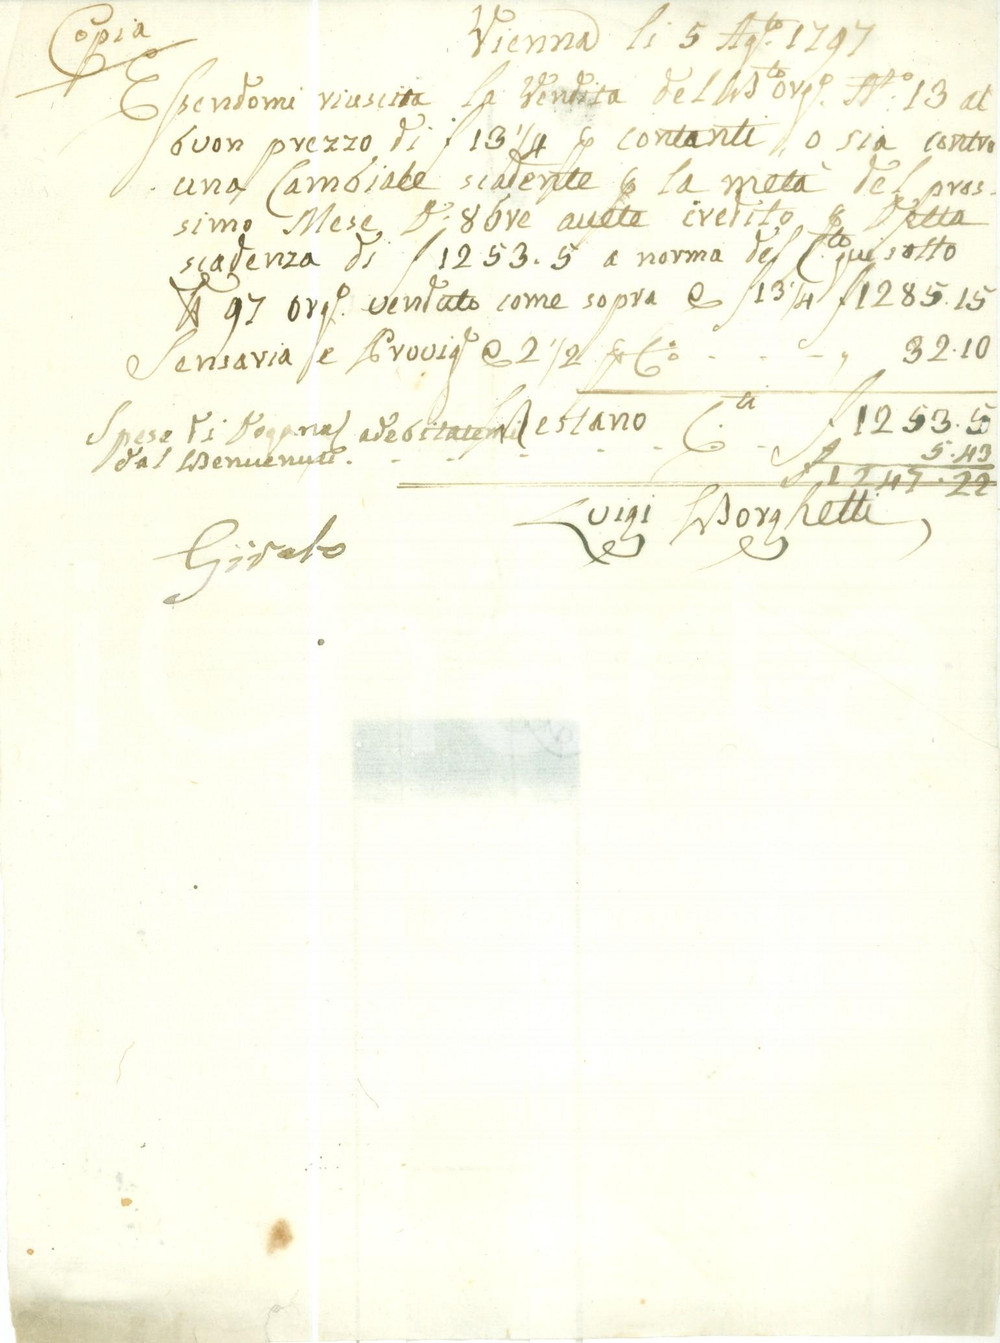 Copia
Vienna li 5 Ag.to 1797
Essendomi riuscita la Vendita del Org.o N.o 13 al
buon prezzo di f 13 1/4 p contanti, o sia contro
una Cambiale scadente p la metà del pros-
simo Mese d: 8bre avete credito p detta
scadenza di f 1253.5 a norma del C.to qui sotto
97 Org.o venduto come sopra @ f 13 1/4 f 1285.15
Sensaria e Provig @ 2 1/2 p C.o - - - - , 32.10
Restano C.ti f 1253.5
Spese di Dogana adebitatemi
dal Benvenuti. - - - - - 5.43
f 1247.22
Luigi Borghetti
Girato